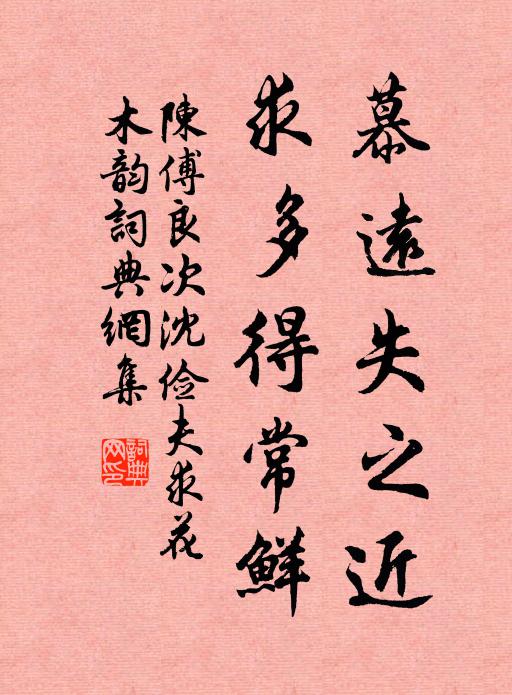 慕遠失之近
求多得常鮮
陳傅良次沈儉夫求花
木韵詞典網集
詞典網印